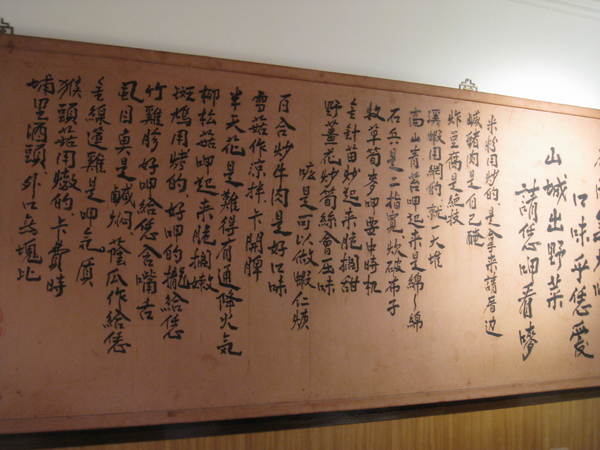 口味乎恁愛
山城出野菜
請恁呷看嘜
米粉用炒的是 來請厝边
鹹豬肉是自己醃
炸豆腐是絕技
溪蝦用網的就一大堆
高山青苔呷起來是綿々綿
石 是二指寬炊破布子
草筍 呷要 時机
金針苗炒起來脆擱甜
野薑花炒筍絲會出味
是可以做蝦仁
百合炒牛肉是好口味
雪菇作涼拌卡開脾
半天花是難得有通降火氣
柳松菇呷起來脆擱嫩
斑鴿用烤的好呷的攏給恁
竹雞胗好呷給恁含嘴舌
虱目魚是鹹焖蔭瓜作給恁
金線蓮雞是呷气質
猴頭菇用燉的卡費時
埔里酒頭外口無塊比